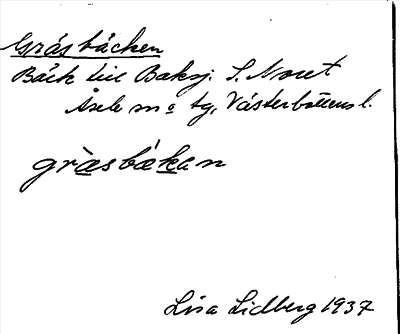 Gräsbäcken
Bäck till Baksj. S. Noret
Åsele sn o tg, Västerbottens l.
gràsbäkan
Lisa Lidberg 1937